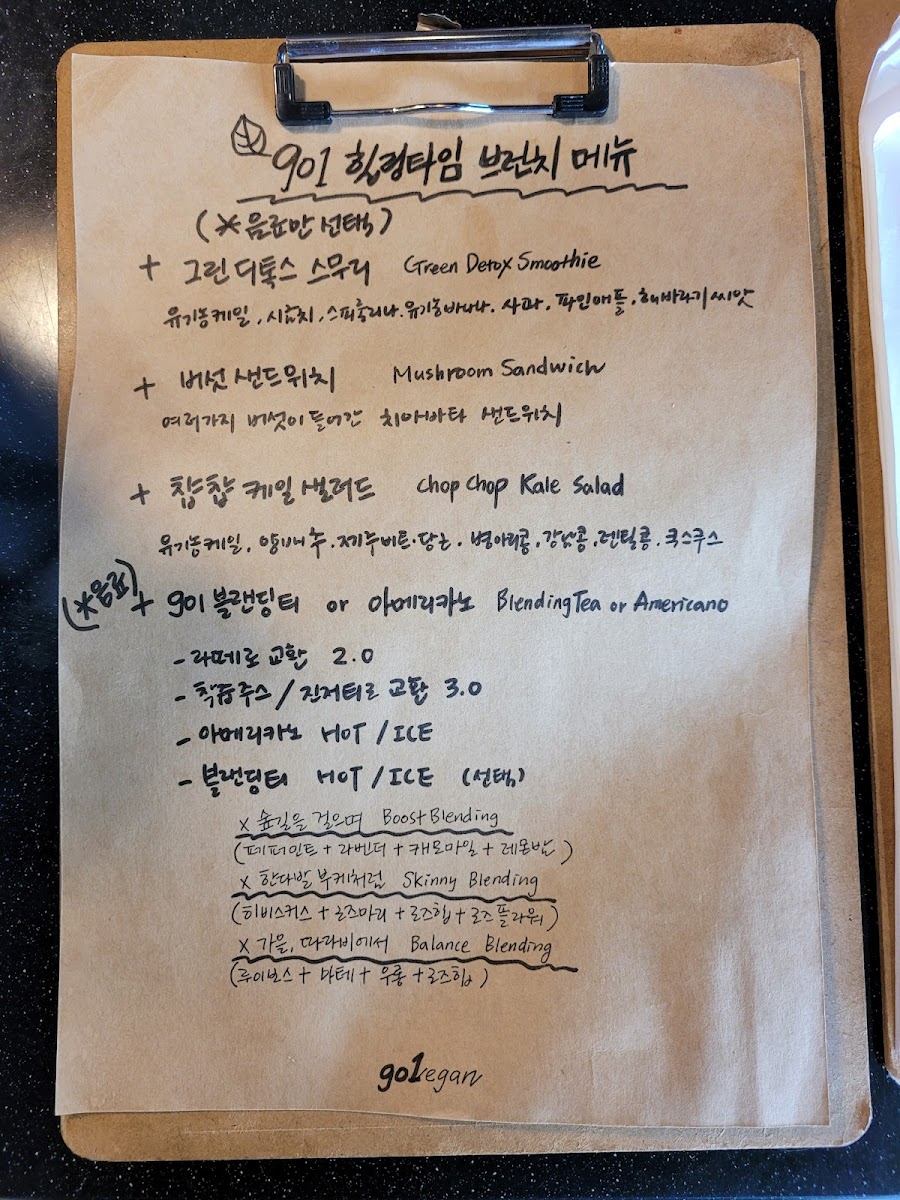 901 힐링타임 브런치 메뉴
(*음료만 선택)
+ 그린 디톡스 스무리 Green Detox Smoothie
유기농케일, 시금치, 스피룰리나, 유기농바나나, 사과, 파인애플, 해바라기씨앗
+ 버섯 샌드위치 Mushroom Sandwich
여러가지 버섯이 들어간 치아바타 샌드위치
+ 찹찹 케일 샐러드 Chop Chop Kale Salad
유기농케일, 양배추, 제주비트, 당근, 병아리콩, 강낭콩, 렌틸콩, 쿠스쿠스
(*음료) + 901 블랜딩티 or 아메리카노 Blending Tea or Americano
- 라떼로 교환 2.0
- 착즙주스 / 진저티로 교환 3.0
- 아메리카노 HOT / ICE
- 블랜딩티 HOT / ICE (선택)
x 숲길을 걸으며 Boost Blending
(페퍼민트 + 라벤더 + 캐모마일 + 레몬밤)
x 한다발 부케처럼 Skinny Blending
(히비스커스 + 로즈마리 + 로즈힙 + 로즈플라워)
x 가을, 따라비에서 Balance Blending
(루이보스 + 마테 + 우롱 + 로즈힙)
go1vegan